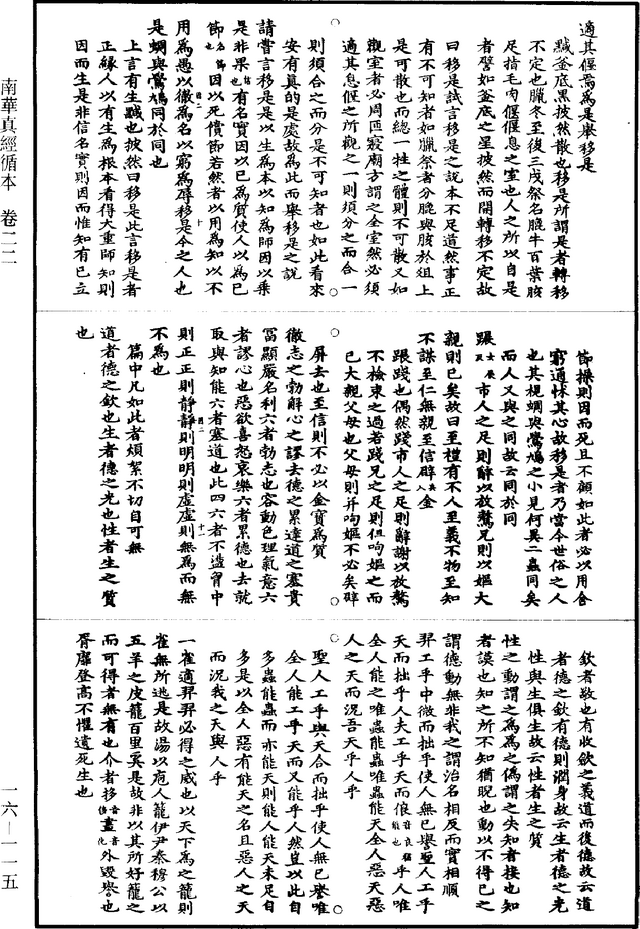 適其偃焉為是舉移是
黬釜底黑披然散也移是所謂是者轉移
不定也臘冬至後三戌祭名膍牛百葉胲
足指毛肉偃偃息之室也人之所以自是
者譬如釜底之墨披然而開轉移不定故
曰移是試言移是之說本不足道然事正
有不可知者如臘祭者分膍與胲於俎上
是可散也而總一牲之體則不可散又如
觀室者必周匝寢廟方謂之全室然必須
適其息偃之所觀之一則須分之而合一
則須合之而分是不可知者也如此看來
安有真的是處故為此而舉移是之說
請嘗言移是是以生為本以知為師因以乘
是非果有名實因以己為質使人以為己
節因以死償節若然者以用為知以不
用為愚以徹為名以窮為辱移是今之人也
是蜩與鷽鳩同於同也
上言有生黬也披然曰移是此言移是者
正緣人以有生為根本看得大重師知則
因而生是非信名實則因而惟知有己立
節操則因而死且不顧如此者必以用舍
窮通怵其心故移是者乃當今世俗之人
也其視蜩與鷽鳩之小見何異二蟲同矣
而人又與之同故云同於同
蹍市人之足則辭以放驁兄則以嫗大
親則已矣故曰至禮有不人至義不物至知
不謀至仁無親至信辟金
蹍踐也偶然踐市人之足則辭謝以放驁
不檢束之過若踐兄之足則但呴嫗之而
已大親父母也父母則并呴嫗不必矣辟
屏去也至信則不必以金寶為質
徹志之勃解心之謬去德之累達道之塞貴
富顯嚴名利六者勃志也容動色理氣意六
者謬心也惡欲喜怒哀樂六者累德也去就
取與知能六者塞道也此四六者不盪胷中
則正正則靜靜則明明則虛虛則無為而無
不為也
篇中凡如此者煩絮不切自可無
道者德之欽也生者德之光也性者生之質
也
欽者敬也有收斂之義道而後德故云道
者德之欽有德則潤身故云生者德之光
性與生俱生故云性者生之質
性之動謂之為為之偽謂之失知者接也知
者謨也知之所不知猶睨也動以不得已之
謂德動無非我之謂治名相反而實相順
羿工乎中微而拙乎使人無已譽聖人工乎
天而拙乎人夫工乎天而俍乎人唯
全人能之唯蟲能蟲唯蟲能天全人惡天惡
人之天而況吾天乎人乎
聖人工乎與天合而拙乎使人無已譽唯
全人能工乎天而又能乎人然豈以此自
多蟲能蟲而亦能天則能人能天未足自
多是以全人惡有能天之名且惡人之天
而況我之天與人乎
一雀適羿羿必得之威也以天下為之籠則
雀無所逃是故湯以庖人籠伊尹秦穆公以
五羊之皮籠百里奚是故非以其所好籠之
而可得者無有也介者拸畫外毀譽也
胥靡登高不懼遺死生也
南華真經循本 卷二二
一六—一一五